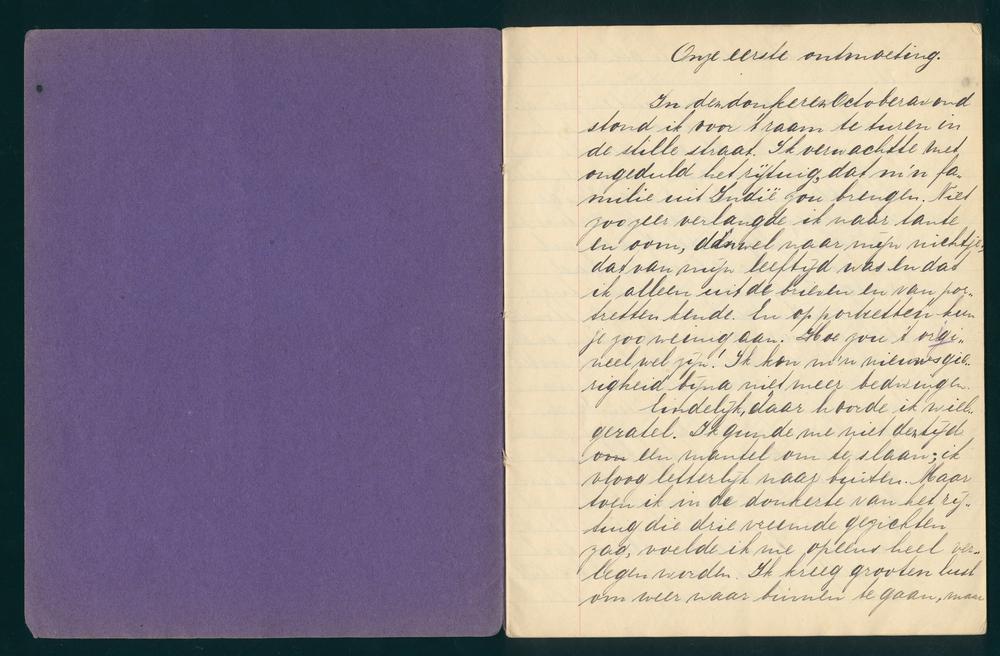 Onze eerste ontmoeting.
In den donkeren Octoberavond
stond ik voor 't raam te turen in
de stille straat. Ik verwachtte met
ongeduld het rijtuig, dat m'n fa-
milie uit Indië zou brengen. Niet
zoozeer verlangde ik naar tante
en oom, dan wel naar mijn nichtje,
dat van mijn leeftijd was en dat
ik alleen uit de brieven en van por-
tretten kende. En op portretten kun
je zoo weinig aan. Hoe zou 't origi-
neel wel zijn! Ik kon m'n nieuwsgie-
righeid bijna niet meer bedwingen.
Eindelijk, daar hoorde ik wiel-
geratel. Ik gunde me niet den tijd
om een mantel om te slaan; ik
vloog letterlijk naar buiten. Maar
toen ik in de donkerte van het rij-
tuig die drie vreemde gezichten
zag, voelde ik me opeens heel ver-
legen worden. Ik kreeg grooten lust
om weer naar binnen te gaan, maar